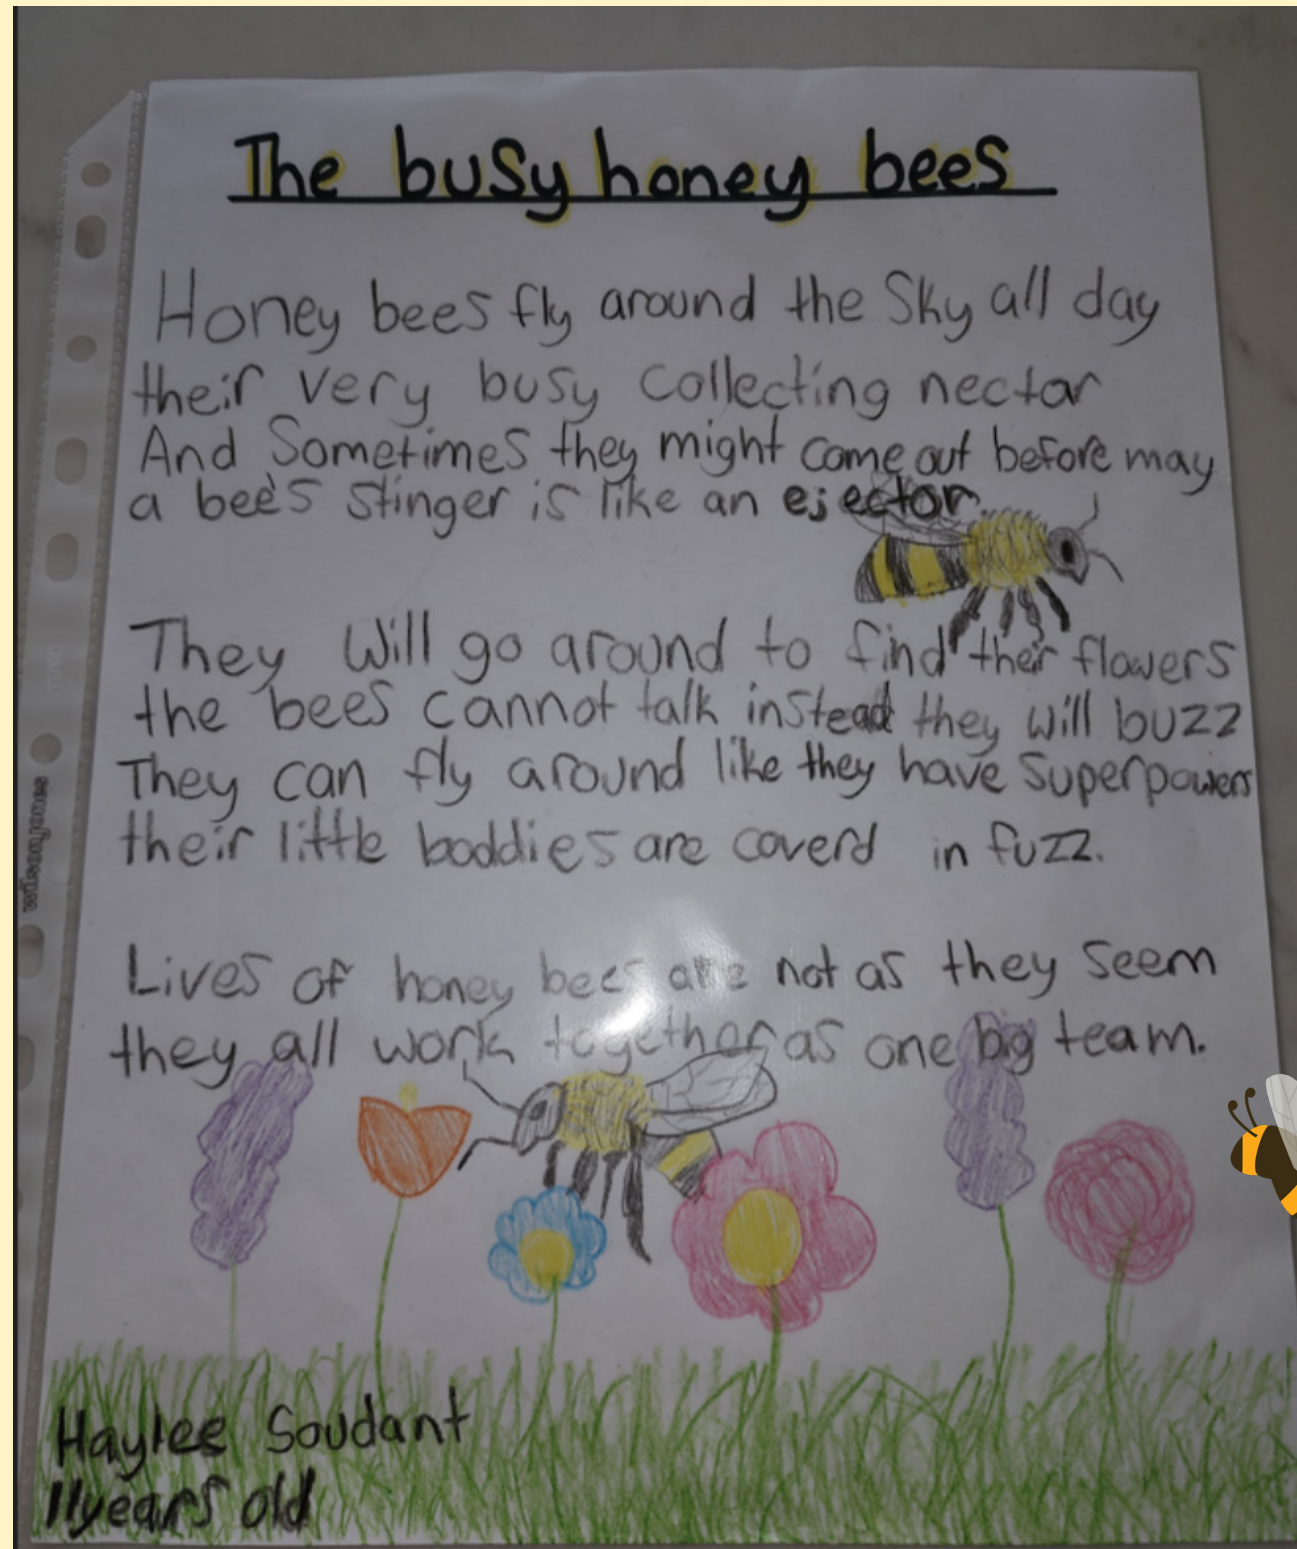 The busy honey bees
Honey bees fly around the Sky all day
their very busy collecting nectar
And Sometimes they might come out before may
a bee's stinger is like an ejector.
They will go around to find their flowers
the bees cannot talk instead they will buzz
They can fly around like they have Superpowers
their little boddies are coverd in fuzz.
Lives of honey bees are not as they seem
they all work together as one big team.
Haylee Soudant
11years old